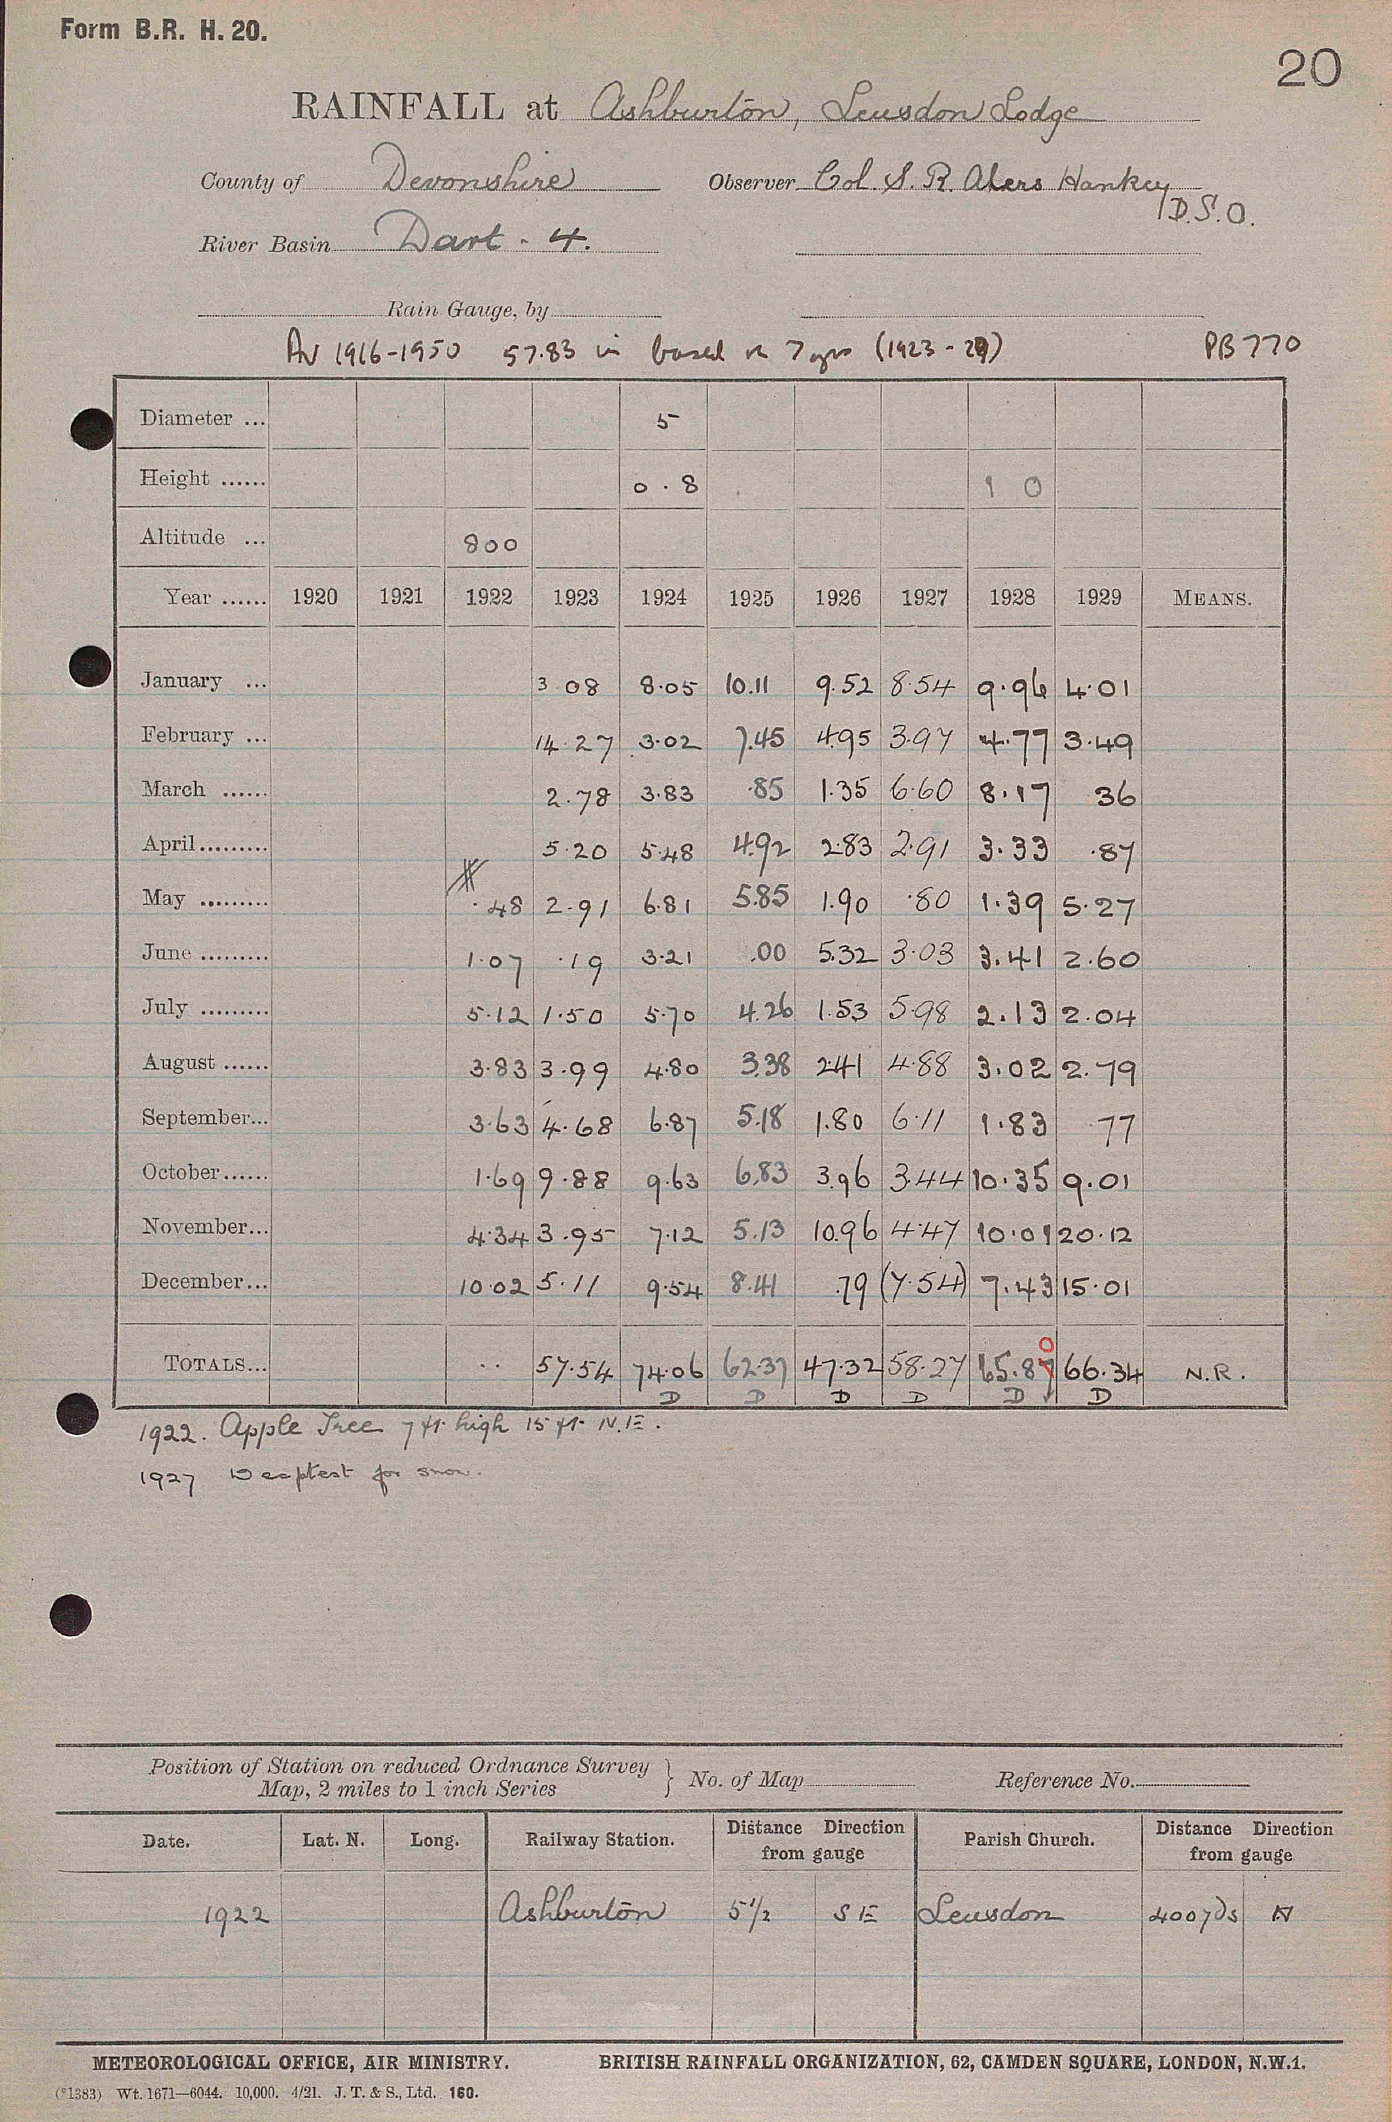 Form B.R. H. 20.
20
RAINFALL at Ashburton, Leusdon Lodge
County of Devonshire Observer Col. S. R. Alers Hankey
D.S.O.
River Basin Dart - 4.
Rain Gauge, by
Av 1916-1950 57.83 in based on 7 yrs (1923-29) PB770
Diameter ... 5
Height ...... 0.8 1 0
Altitude ... 800
Year ...... 1920 1921 1922 1923 1924 1925 1926 1927 1928 1929 MEANS.
January ... 3.08 8.05 10.11 9.52 8.54 9.96 4.01
February ... 14.27 3.02 7.45 4.95 3.97 4.77 3.49
March ...... 2.78 3.83 .85 1.35 6.60 8.17 36
April......... 5.20 5.48 4.92 2.83 2.91 3.33 .87
May ......... .48 2.91 6.81 5.85 1.90 .80 1.39 5.27
June ......... 1.07 .19 3.21 .00 5.32 3.03 3.41 2.60
July ......... 5.12 1.50 5.70 4.26 1.53 5.98 2.13 2.04
August ...... 3.83 3.99 4.80 3.38 2.41 4.88 3.02 2.79
September... 3.63 4.68 6.87 5.18 1.80 6.11 1.83 .77
October...... 1.69 9.88 9.63 6.83 3.96 3.44 10.35 9.01
November... 4.34 3.95 7.12 5.13 10.96 4.47 10.01 20.12
December... 10.02 5.11 9.54 8.41 .79 (7.54) 7.43 15.01
0
TOTALS... .. 57.54 74.06 62.37 47.32 58.27 65.87 66.34 N.R.
D D D D D D
1922. Apple Tree 7 ft. high 15 ft. N.E.
1927 for snow.
Position of Station on reduced Ordnance Survey
Map, 2 miles to 1 inch Series } No. of Map Reference No.
Date. Lat. N. Long. Railway Station. Distance Direction from gauge Parish Church. Distance Direction from gauge
1922 Ashburton 5½ S E Leusdon 400 yds N
METEOROLOGICAL OFFICE, AIR MINISTRY. BRITISH RAINFALL ORGANIZATION, 62, CAMDEN SQUARE, LONDON, N.W.1.
(*1383) Wt. 1671—6044. 10,000. 4/21. J. T. & S., Ltd. 160.